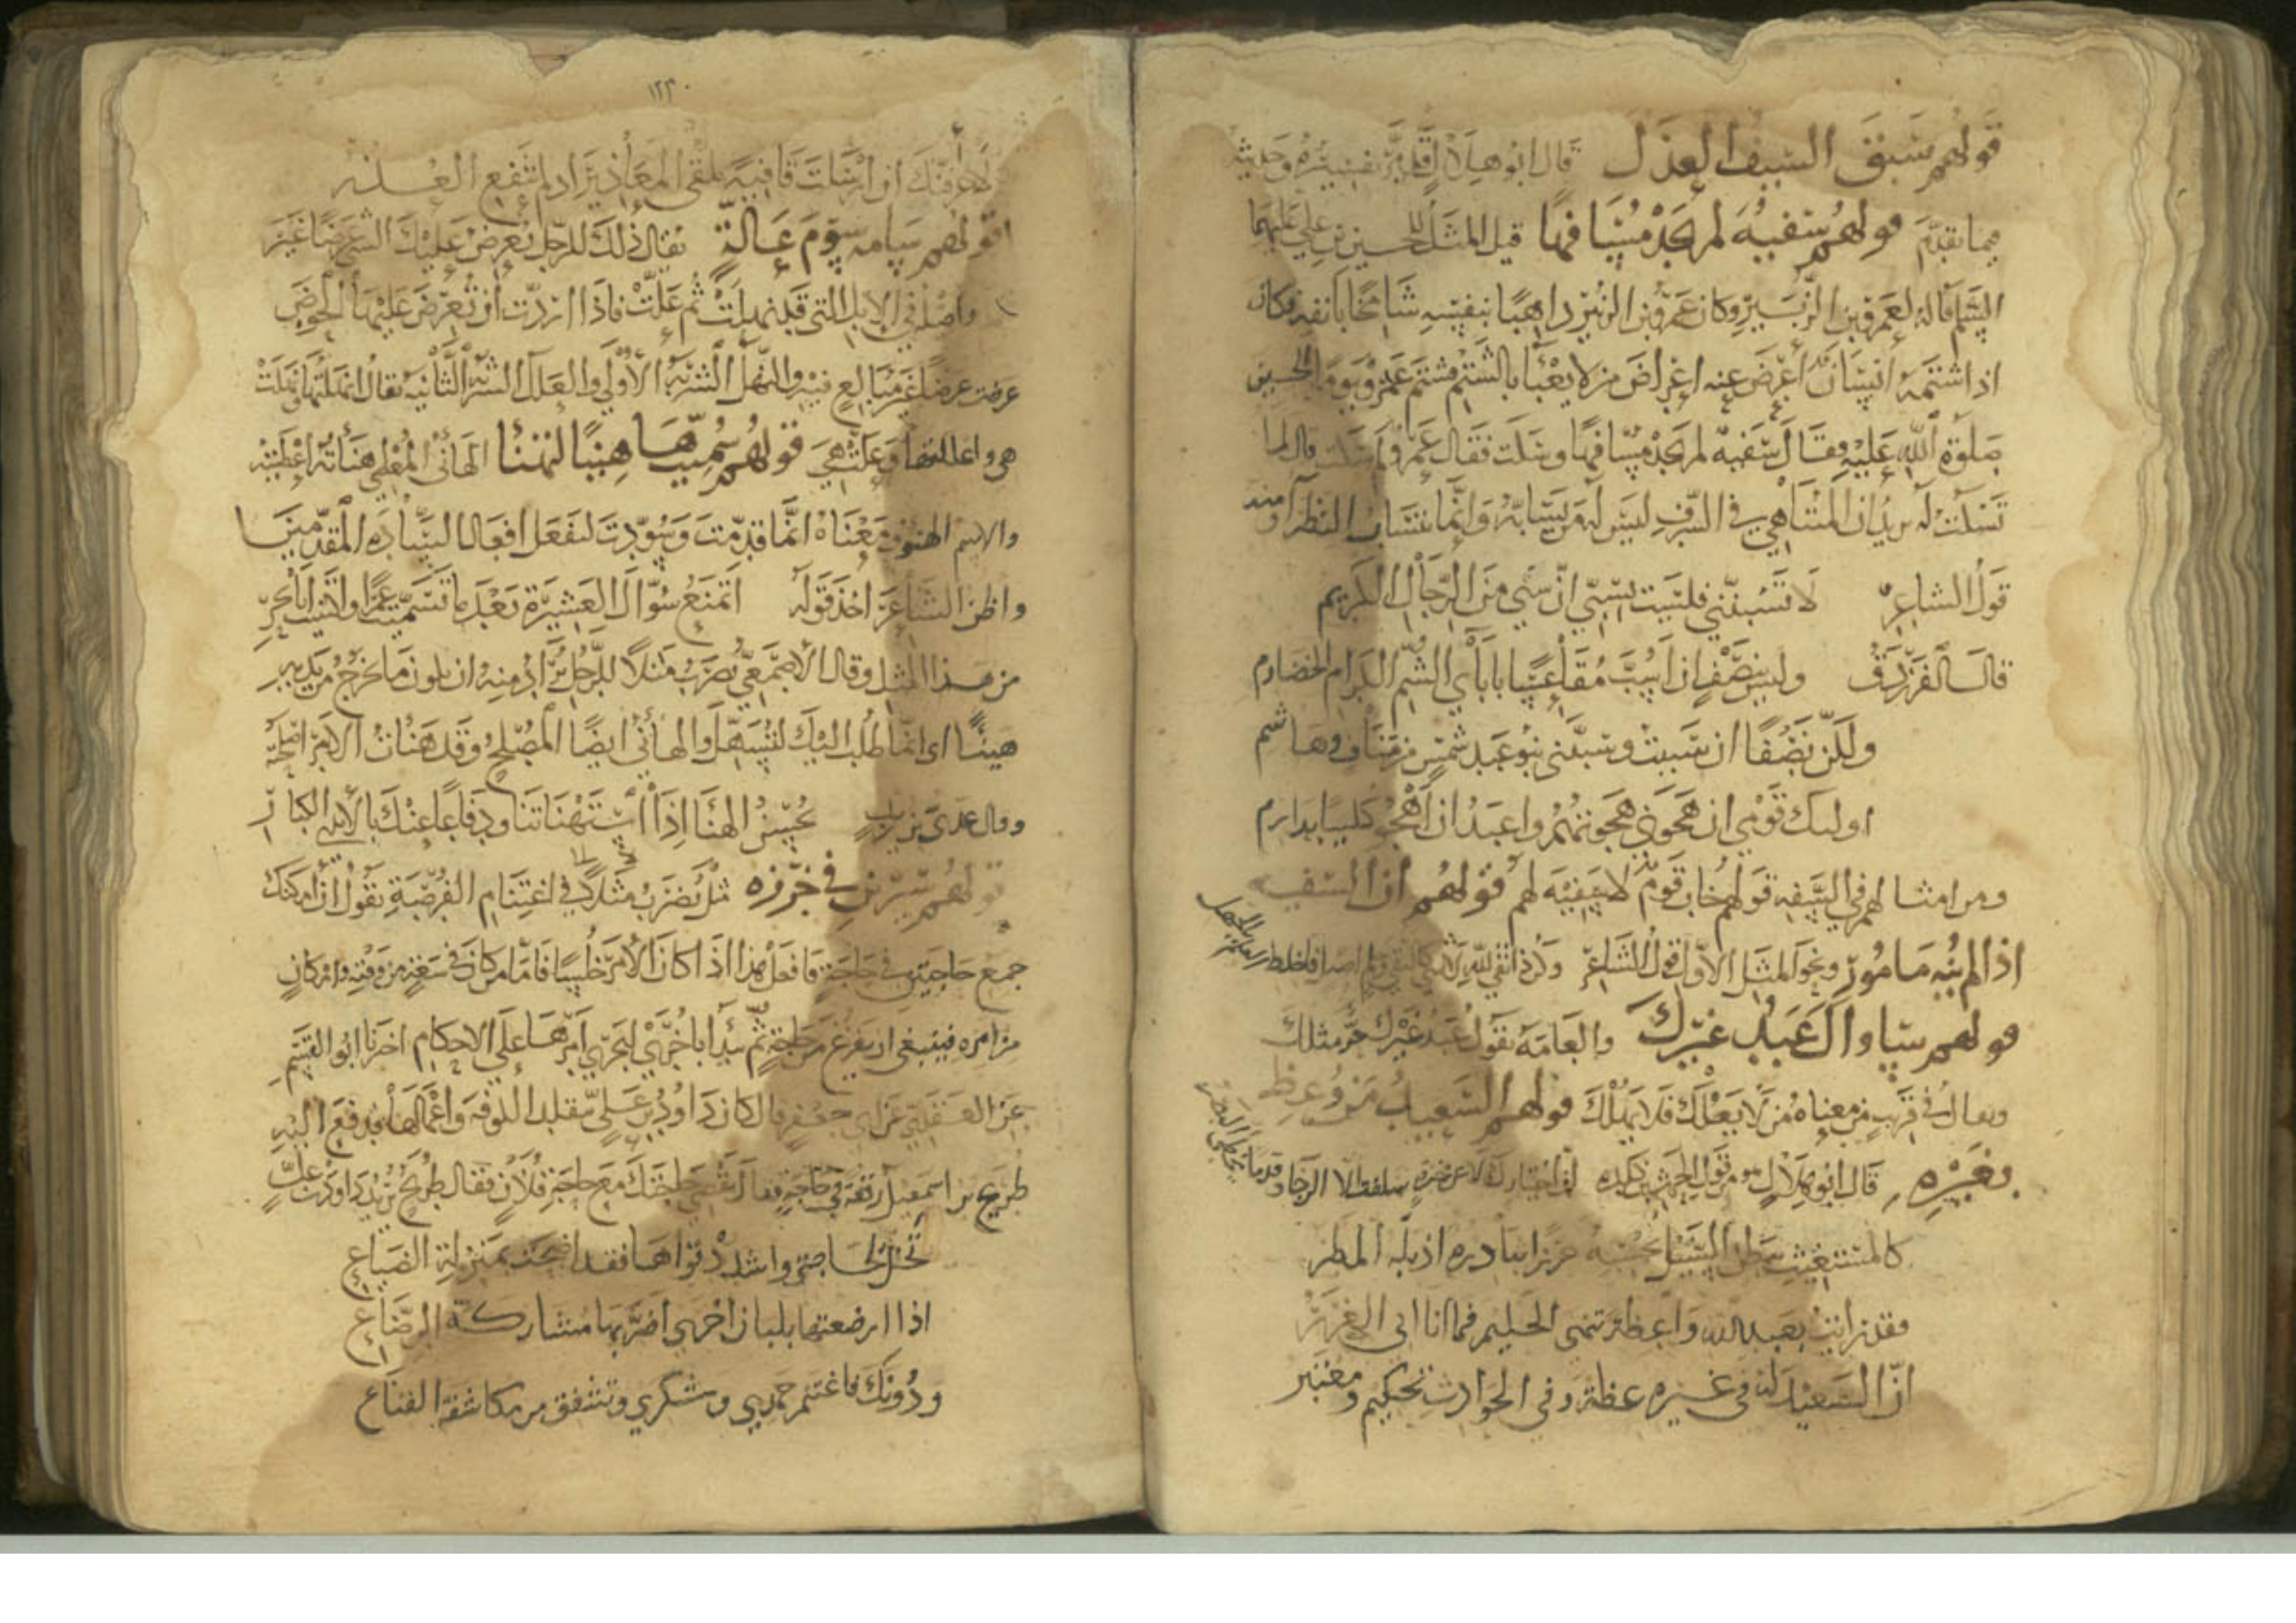 قولهم سبق السيف العذل قال ابو هلال قد مر تفسيره وحديثه
فيما تقدم قولهم سفيه لم يجد مسافها قيل المثل للحسين بن علي عليهما
السلم قاله لعمرو بن الزبير وكان عمرو بن الزبير ذاهبا بنفسه شامخا بانفه وكان
اذا شتمه انسان اعرض عنه اعراض من لا يعبأ بالشتم فشتم عمرو يوما الحسين
صلوة الله عليه فقال سفيه لم يجد مسافها وسكت فقال عمرو لم سكت قال لما
تسكت له يريد ان المتناهي في الشرف ليس له من يسابه وانما يتساب النظرآ ومنه
قول الشاعر لا تسبنني فلست بسبي ان سبي من الرجال الكريم
قال الفرزدق وليس بنصف ان اسب مقاعسا باباأي الشم الكرام الخضارم
ولكن نصفا ان سببت وسبني بنو عبد شمس من مناف وهاشم
اولىك قومي ان هجوني هجوتهم واعبد ان اهجو كليبا بدارم
ومن امثالهم في السفه قولهم خاب قوم لا سفيه لهم قولهم ان السفيه
اذا لم ينه مامور ونحو المثل الاول قول الشاعر
قولهم ساواك عبد غيرك والعامة تقول عبد غيرك حر مثلك
ويقال في قريب من معناه من لا يعلك فلا يملك قولهم السعيد من وعظ
بغيره قال ابو هلال هو من قول الحرث بن كلدة ان اختيارك لا عن خبرة سلفت الا الرجاء وقدما يخطي البصر
كالمستغيث ببطن السيل يحسبه حرزا يبادره اذ بله المطر
فقد رايت بعبد الله واعظة تنهى الحليم فما انا ابى الغرر
ان السعيد له في غيره عظة وفي الحوادث تحكيم ومعتبر
١٢٣٠
لاعرفنك ان ارسلت قافية تلقى المعاذير اذ لم تنفع العذر
قولهم سامه سوم عالة يقال ذلك للرجل يعرض عليك الشي عرضا غير
واصله في الابل التي قد نهلت ثم علت فاذا اردت ان تعرض عليها الحوض
عرضت عرضا غير مبالغ فيه والنهل الشربة الاولى والعلل الشربة الثانية يقال انهلتها ونهلت
هي واعللتها وعلت هي قولهم سميت هانيا لتهنا الهانئ المعطي هنأته اعطيته
والاسم الهنو ومعناه انما قدمت وسودت لتفعل افعال السادة المقدمين
واظن الشاعر اخذ قوله اتمنع سوال العشيرة بعد ما تسميت عمرا واكتنيت ابا بحر
من هذا المثل وقال الاصمعي يضرب مثلا للرجل يراد منه ان يكون ما يخرج من يديه
هينا اى انما طلب اليك لتسهل والهانئ ايضا المصلح وقد هنات الامر اصلحته
وقال عدى بن زيد نحسن الهنا اذا استهناتنا ودفاعا عنك بالايد الكبار
قولهم سيرين في خرزه مثل يضرب مثلا في اغتنام الفرصة يقول ان امكنك
جمع حاجتين في حاجة فافعل هذا اذا كان الامر خلسا فاما من كان في سعة من وقته وامكان
من امره فينبغي ان يفرغ من حاجة ثم يبدأ باخرى ليجري امرها على الاحكام اخبرنا ابو القسم
عن العقدي عن ابي جعفر قال كان داود بن علي يتقلد الكوفة واعمالها فدفع اليه
طريح بن اسمعيل رقعة في حاجة فقال نقضي حاجتك مع حاجة فلان فقال طريح يريد داود بن علي
تخل لحاجتي واشدد قواها فقد اضحت بمنزلة الضياع
اذا ارضعتها بلبان اخرى اضر بها مشاركة الرضاع
ودونك فاغتنم حمدي وشكري وتشفق من مكاشفة القناع